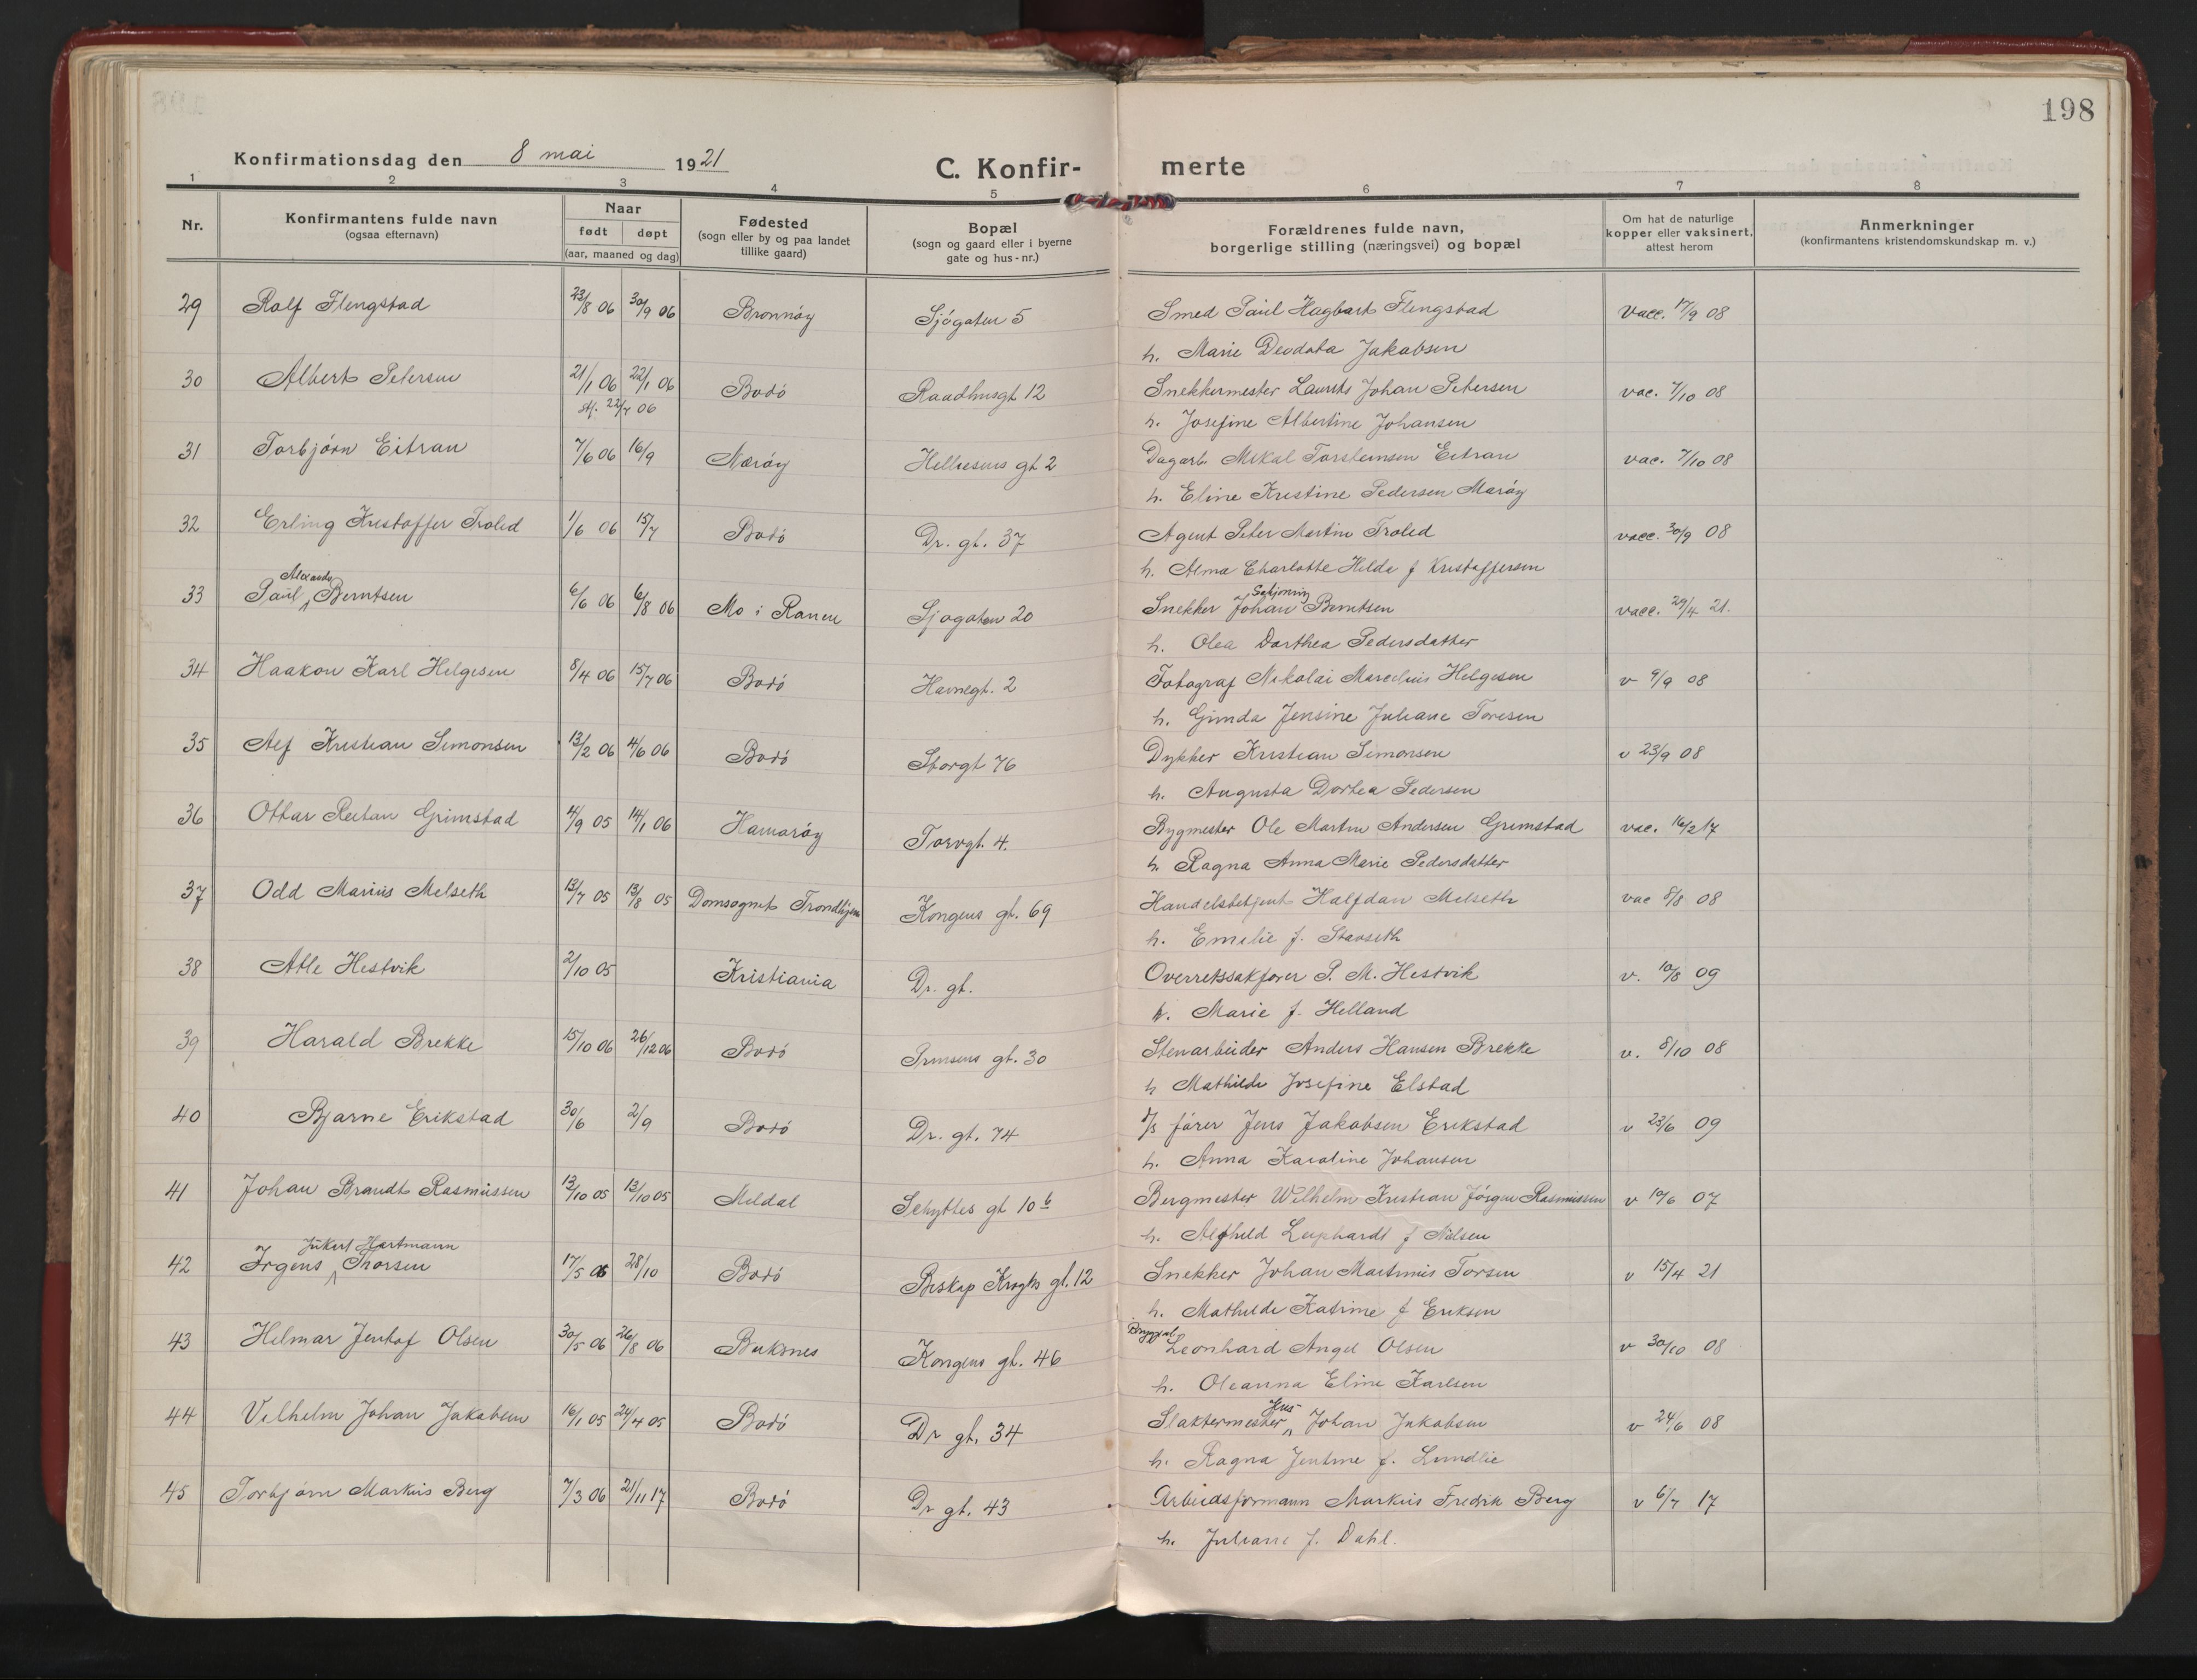 198
Konfirmationsdag den 8 mai 1921
C. Konfir- merte
1 2 3 4 5 6 7 8
Nr.
Konfirmantens fulde navn
(ogsaa efternavn)
Naar
født døpt
(aar, maaned og dag)
Fødested
(sogn eller by og paa landet
tillike gaard)
Bopæl
(sogn og gaard eller i byerne
gate og hus-nr.)
Forældrenes fulde navn,
borgerlige stilling (næringsvei) og bopæl
Om hat de naturlige
kopper eller vaksinert,
attest herom
Anmerkninger
(konfirmantens kristendomskundskap m. v.)
29 Rolf Flengstad 23/8 06 30/9 06 Bronnøy Sjøgaten 5 Smed Paul Hagbart Flengstad vacc. 17/9 08
h. Marie Deodata Jakobsen
30 Albert Petersen 21/1 06 22/1 06 Bodø Raadhusgt 12 Snekkermester Laurits Johan Petersen vac. 7/10 08
stf. 22/7 06 h. Josefine Albertine Johansen
31 Torbjørn Eitran 7/6 06 16/9 Nærøy Hellesens gt 2 Dagarb Mikal Torsteinsen Eitran vac. 7/10 08
h. Eline Kristine Pedersen Marøy
32 Erling Kristoffer Troled 1/6 06 15/7 Bodø Dr. gt. 37 Agent Peter Martin Troled vacc. 30/9 08
h. Alma Charlotte Hilda f Kristoffersen
33 Paul Alexander Berntsen 6/6 06 6/8 06 Mo i Ranen Sjøgaten 20 Snekker Johan Berntsen vacc. 29/4 21.
h. Olea Dorthea Pedersdatter
34 Haakon Karl Helgesen 8/4 06 15/7 06 Bodø Havnegt. 2 Fotograf Nikolai Marcelius Helgesen v 9/9 08
h. Gunda Jensine Juliane Toresen
35 Alf Kristian Simonsen 13/2 06 4/6 06 Bodø Storgt 76 Dykker Kristian Simonsen v 23/9 08
h. Augusta Dortea Pedersen
36 Ottar Reitan Grimstad 4/9 05 14/1 06 Hamarøy Torvgt. 4. Bygmester Ole Martin Andersen Grimstad vac. 16/2 17
h. Ragna Anna Marie Pedersdatter
37 Odd Marius Melseth 13/7 05 13/8 05 Domsognet Trondhjem Kongens gt. 69 Handelsbetjent Halfdan Melseth vac 8/8 08
h. Emilie f. Stavseth
38 Atle Hestvik 2/10 05 Kristiania Dr. gt. Overretssakfører P. M. Hestvik v. 10/8 09
h. Marie f. Helland
39 Harald Brekke 15/10 06 26/12 06 Bodø Prinsens gt. 30 Stenarbeider Anders Hansen Brekke v. 8/10 08
h Mathilde Josefine Elstad
40 Bjarne Erikstad 30/6 2/9 Bodø Dr. gt. 74 d/s fører Jens Jakobsen Erikstad v 23/6 09
h. Anna Karoline Johansen
41 Johan Brandt Rasmussen 13/10 05 13/10 05 Meldal Schyttes gt 10 b Bergmester Wilhelm Kristian Jørgen Rasmussen v 10/6 07
h. Alfhild f Nilsen
42 Irgens Hartmann Thorsen 17/5 06 28/10 Bodø Biskop Kroghs gt. 12 Snekker Johan Martinus Torsen v 15/4 21
h. Mathilde Katrine f Eriksen
43 Hilmar Jentof Olsen 30/5 06 26/8 06 Buksnes Kongens gt. 46 Leonhard Angel Olsen v 30/10 08
h. Oleanna Eline Karlsen
44 Vilhelm Johan Jakobsen 16/1 05 24/4 05 Bodø Dr gt. 34 Slaktermester Jens Johan Jakobsen v 24/6 08
h. Ragna Jentine f. Lundlie
45 Torbjørn Markus Berg 7/3 06 21/11 17 Bodø Dr gt. 43 Arbeidsformann Markus Fredrik Berg v 6/7 17
h. Juliane f. Dahl.